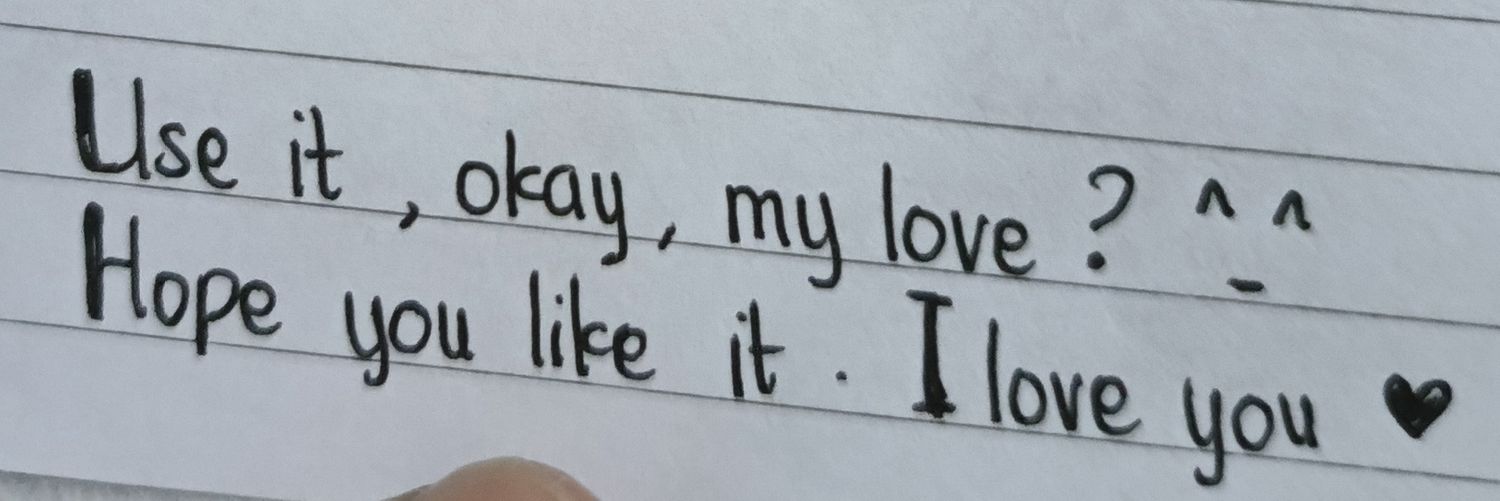 Use it, okay, my love? ^_^
Hope you like it. I love you ♥